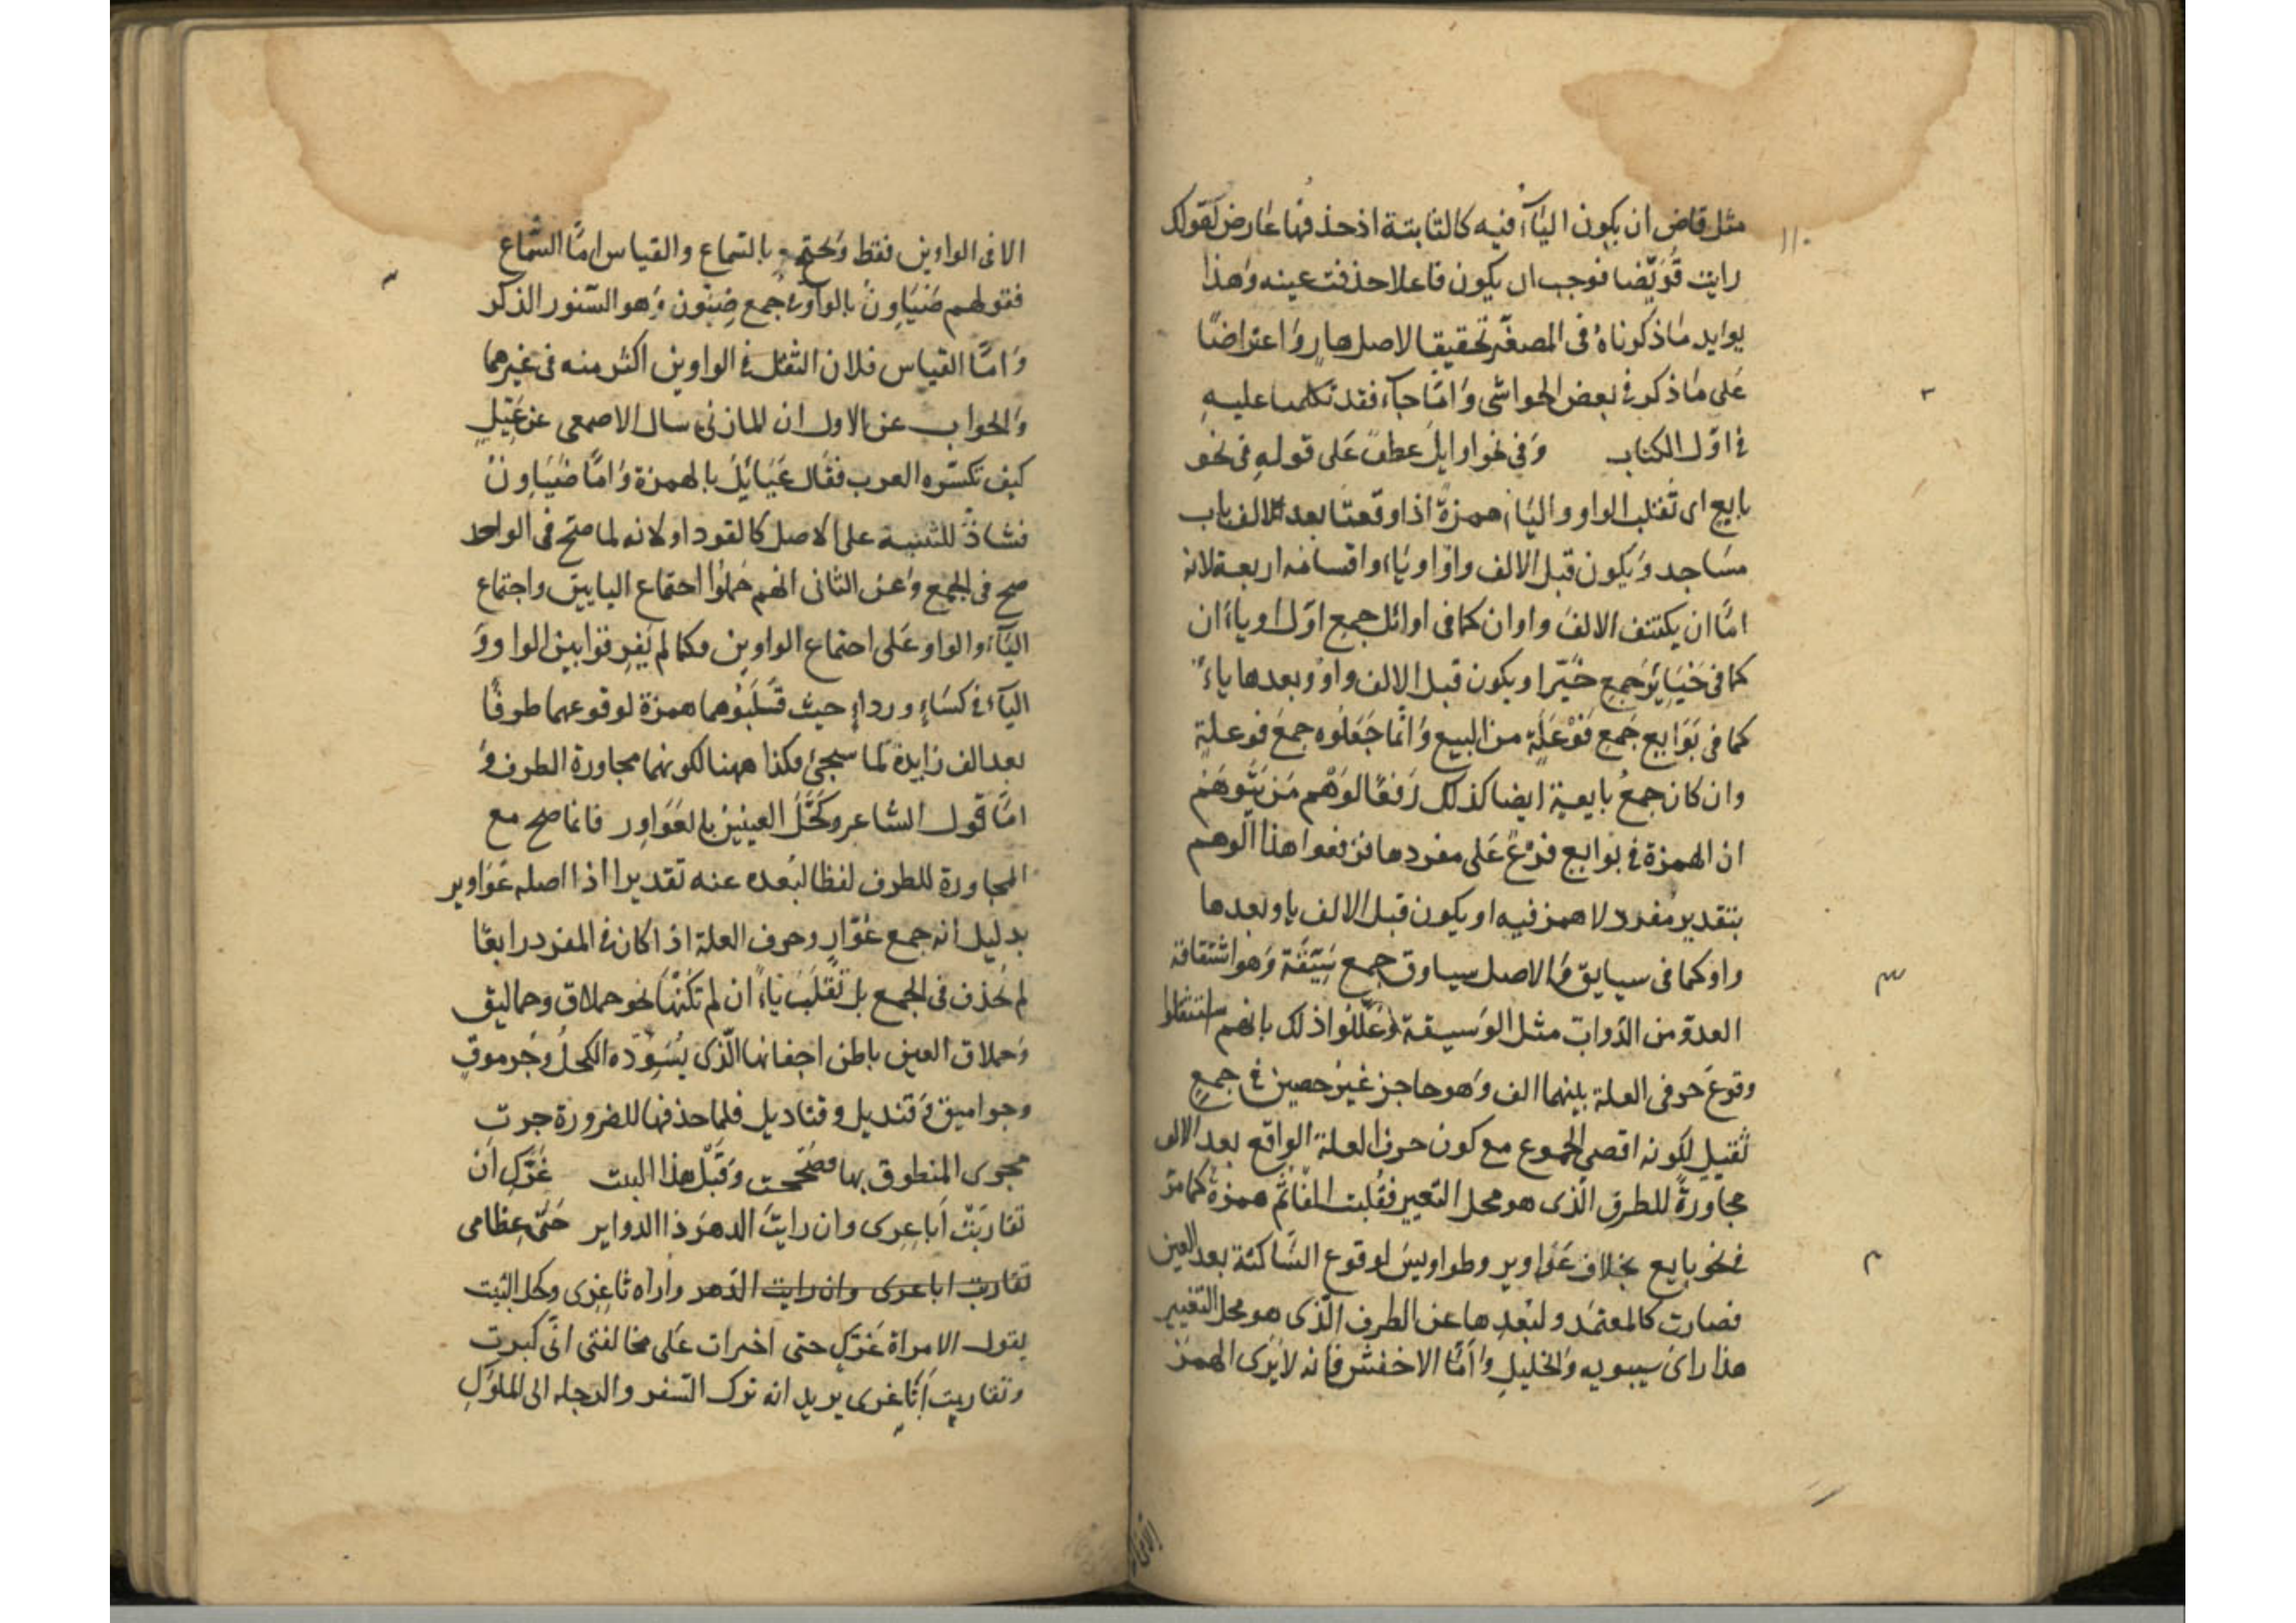 مثل قاض ان يكون الياء فيه كالثابتة اذ حذفها عارض لقولك
رايت قُوَيضا فوجب ان يكون فاعلا حذفت عينه وهذا
يوايد ما ذكرناه فى المصغر تحقيقا لاصل هار واعتراضًا
على ما ذكر فى بعض الحواشى وامّا جاء فقد تكلمنا عليه
فى اوّل الكتاب وفى نحو اوايل عطف على قوله فى نحو
بايع اى تقلب الواو والياء همزةً اذا وقعتا بعد الف باب
مساجد ويكون قبل الالف واو او ياء واقسامه اربعة لانه
امّا ان يكتنف الالف واوان كما فى اوائل جمع اوّل او ياءان
كما فى خَيَاير جمع خيّر او يكون قبل الالف واو وبعدها ياءً
كما فى بَوَايع جمع فَوْعَلَة من البيع وانّما جَعَلُوه جمع فوعلة
وان كان جمعُ بايعة ايضا كذلك رَفعًا لوَهْم مَن يتوهم
ان الهمزة فى بوايع فرعٌ على مفردها فرفعوا هذا الوهم
بتقدير مفرد لا همز فيه او يكون قبل الالف يا وبعدها
واو كما فى سيايق والاصل سياوق جمع سَيّقَة وهو اشتقاقة
العدوّ من الدّواب مثل الوسيقة وعَلّلوا ذلك بانهم استثقلوا
وقوعَ حرفى العلة بينهما الف وهو حاجز غير حصين فى جمع
ثقيل لكونه اقصى الجموع مع كون حرف العلة الواقع بعد الالف
مجاورةً للطرف الّذى هو محل التغيير فقلبت الفا ثم همزة كما مرّ
فى نحو بايع بخلاف عَوَاوير وطواويس لوقوع السّاكنة بعد العين
فصارت كالمعتمد ولبُعدِها عن الطرف الّذى هو محل التغيير
هذا راى سيبويه والخليل وامّا الاخفش فانه لا يرَى الهمز
الا فى الواوين فقط ويحتج بالسّماع والقياس امّا السّماع
فقولهم ضَيَاوِن بالواو جمع ضيون وهو السّنور الذكر
وامّا القياس فلان الثقل فى الواوين اكثر منه فى غيرهما
والجواب عن الاول ان المازنى سال الاصمعى عن عَيّل
كيف تكسّره العرب فقال عَيَائل بالهمزة وامّا ضَيَاوِن
فشاذّ للتنبيه على الاصل كالقود او لانه لما صح فى الواحد
صح فى الجمع وعن الثانى انهم حملوا اجتماع اليايين واجتماع
الياء والواو على اجتماع الواوين وكما لم يفرقوا بين الواو و
الياء فى كساءٍ ورداءٍ حيث قلبوهما همزة لوقوعهما طرفًا
بعد الف زايدة لما سيجئ فكذا ههنا لكونهما مجاورة الطرف و
امّا قول الشاعر وكحّل العينين بالعَوَاوِر فانما صح مع
المجاورة للطرف لفظا لبُعده عنه تقديرا اذ اصله عَوَاوير
بدليل انه جمع عُوّار وحرف العلة اذا كان فى المفرد رابعًا
لم يُحذف فى الجمع بل تقلب ياءً ان لم تكنها نحو حملاق وحماليق
وحملاق العين باطن اجفانها الّذى يُسَوّده الكحل وجُرموق
وجراميق وقنديل وقناديل فلما حذفها للضرورة جرت
مجرى المنطوق بها فصَحّحت وقَبْل هذا البيت غَرّكِ ان
تقاربَتْ اباعِرى وان رايتَ الدهرَ ذا الدواير حَنَى عِظامى
تقاربت اباعرى وان رايت الدهر واراه ثاغرى وكحل البيت
يقول لامراة غرّكِ حتى اجترات على مخالفتى انّى كبرت
وتقاربت اباعرى يريد انه ترك السفر والرحلة الى الملوك